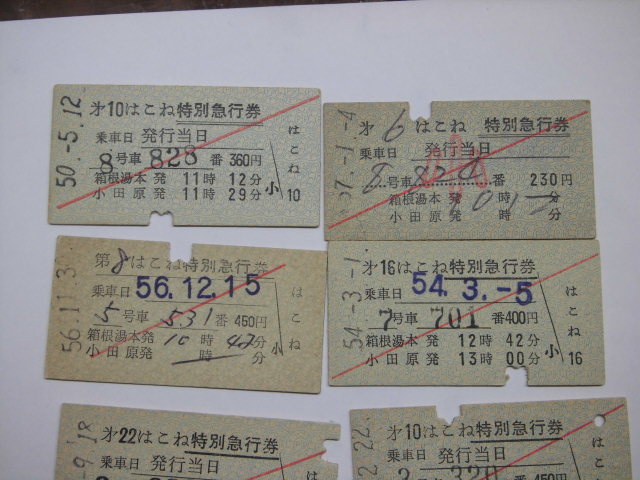 50.-5.12
第10はこね特別急行券
乗車日 発行当日
8号車 828 番 360円
箱根湯本 発 11時 12分
小田原 発 11時 29分
小
はこね
10
57.-1.-4
第 6 はこね 特別急行券
乗車日 発行当日
8 号車 番 230円
箱根湯本 発 時 分
小田原 発 時 分
56.11.3
第8はこね特別急行券
乗車日 56.12.15
5号車 531 番 450円
箱根湯本発 10時 47分
小田原発 時 分
小
はこね
54.-3.-1
第16はこね特別急行券
乗車日 54.3.-5
7号車 701 番400円
箱根湯本 発 12時 42分
小田原 発 13時 00分
小
はこね
16
9.18
第22はこね特別急行券
乗車日 発行当日
は
2.22
第10はこね特別急行券
乗車日 発行当日
3号車 320 番 450円
はこ